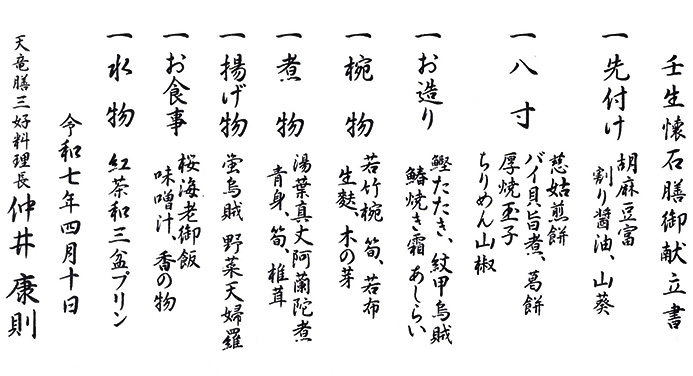 壬生懐石膳御献立書
一先付け
胡麻豆富
割り醤油、山葵
一八寸
慈姑煎餅
バイ貝旨煮、葛餅
厚焼玉子
ちりめん山椒
一お造り
鰹たたき、紋甲烏賊
鰆焼き霜 あしらい
一椀物
若竹椀 筍、若布
生麸、木の芽
一煮物
湯葉真丈阿蘭陀煮
青身、筍、椎茸
一揚げ物
蛍烏賊 野菜天婦羅
一お食事
桜海老御飯
味噌汁、香の物
一水物
紅茶和三盆プリン
令和七年四月十日
天竜膳三好料理長 仲井康則